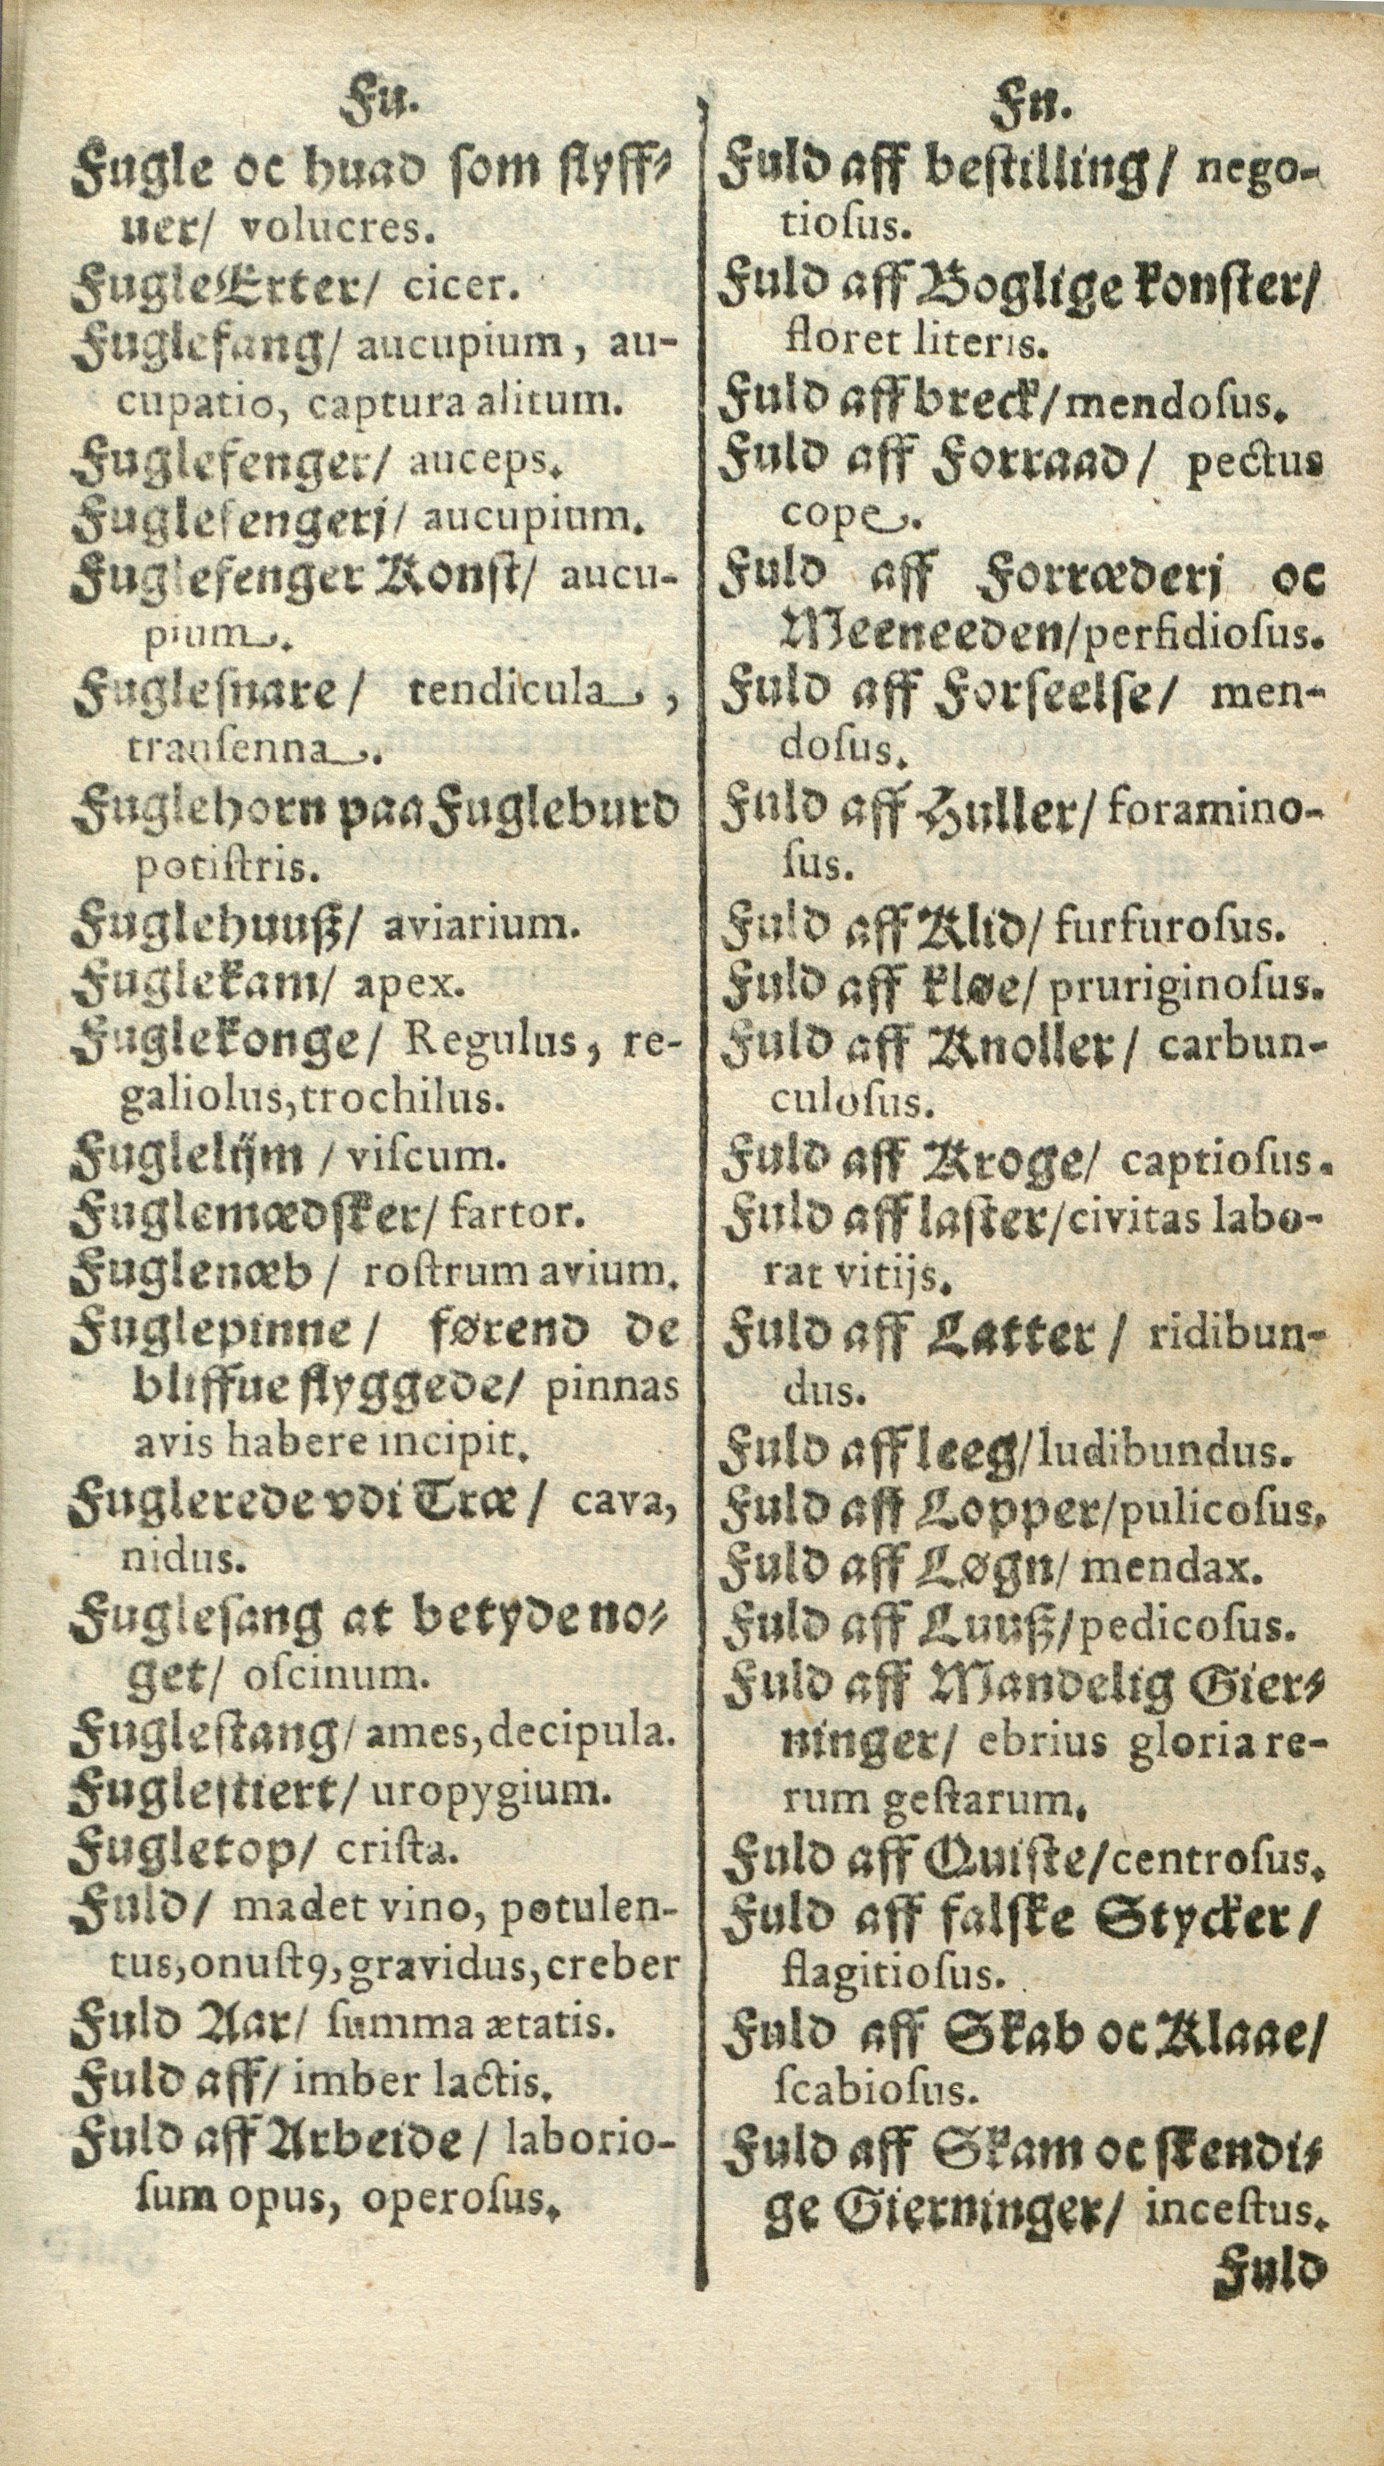 Fu.
Fugle oc huad som flyff⸗
uer/ volucres.
FugleErter/ cicer.
Fuglefang/ aucupium, au-
cupatio, captura alitum.
Fuglefenger/ auceps.
Fuglefengerj/ aucupium.
Fuglefenger Konst/ aucu-
pium.
Fuglesnare/ tendicula,
transenna.
Fuglehorn paa Fugleburd
potiſtris.
Fuglehuuß/ aviarium.
Fuglekam/ apex.
Fuglekonge/ Regulus, re-
galiolus, trochilus.
Fuglelijm / viſcum.
Fuglemædsker/ fartor.
Fuglenæb / roſtrum avium.
Fuglepinne / førend de
bliffue flyggede/ pinnas
avis habere incipit.
Fuglerede vdi Træ / cava,
nidus.
Fuglesang at betyde no⸗
get/ oſcinum.
Fuglestang/ ames, decipula.
Fuglestiert/ uropygium.
Fugletop/ criſta.
Fuld/ madet vino, potulen-
tus, onuſt9, gravidus, creber
Fuld Aar/ ſumma ætatis.
Fuld aff/ imber lactis.
Fuld aff Arbeide / laborio-
ſum opus, operoſus.
Fn.
Fuld aff bestilling/ nego-
tioſus.
Fuld aff Boglige konster/
floret literis.
Fuld aff breck/ mendoſus.
Fuld aff Forraad / pectus
cope.
Fuld aff Forræderj oc
Meeneeden/ perfidioſus.
Fuld aff Forseelse/ men-
doſus.
Fuld aff Huller/ foramino-
ſus.
Fuld aff Klid/ furfuroſus.
Fuld aff kløe/ pruriginoſus.
Fuld aff Knoller/ carbun-
culoſus.
Fuld aff Kroge/ captioſus.
Fuld aff laster/ civitas labo-
rat vitijs.
Fuld aff Latter / ridibun-
dus.
Fuld aff leeg/ ludibundus.
Fuld aff Lopper/ pulicoſus.
Fuld aff Løgn/ mendax.
Fuld aff Luuß/ pedicoſus.
Fuld aff Mandelig Gier⸗
ninger/ ebrius gloria re-
rum geſtarum.
Fuld aff Quiste/ centroſus.
Fuld aff falske Stycker/
flagitioſus.
Fuld aff Skab oc Klaae/
ſcabioſus.
Fuld aff Skam oc skendi⸗
ge Gierninger/ inceſtus.
Fuld